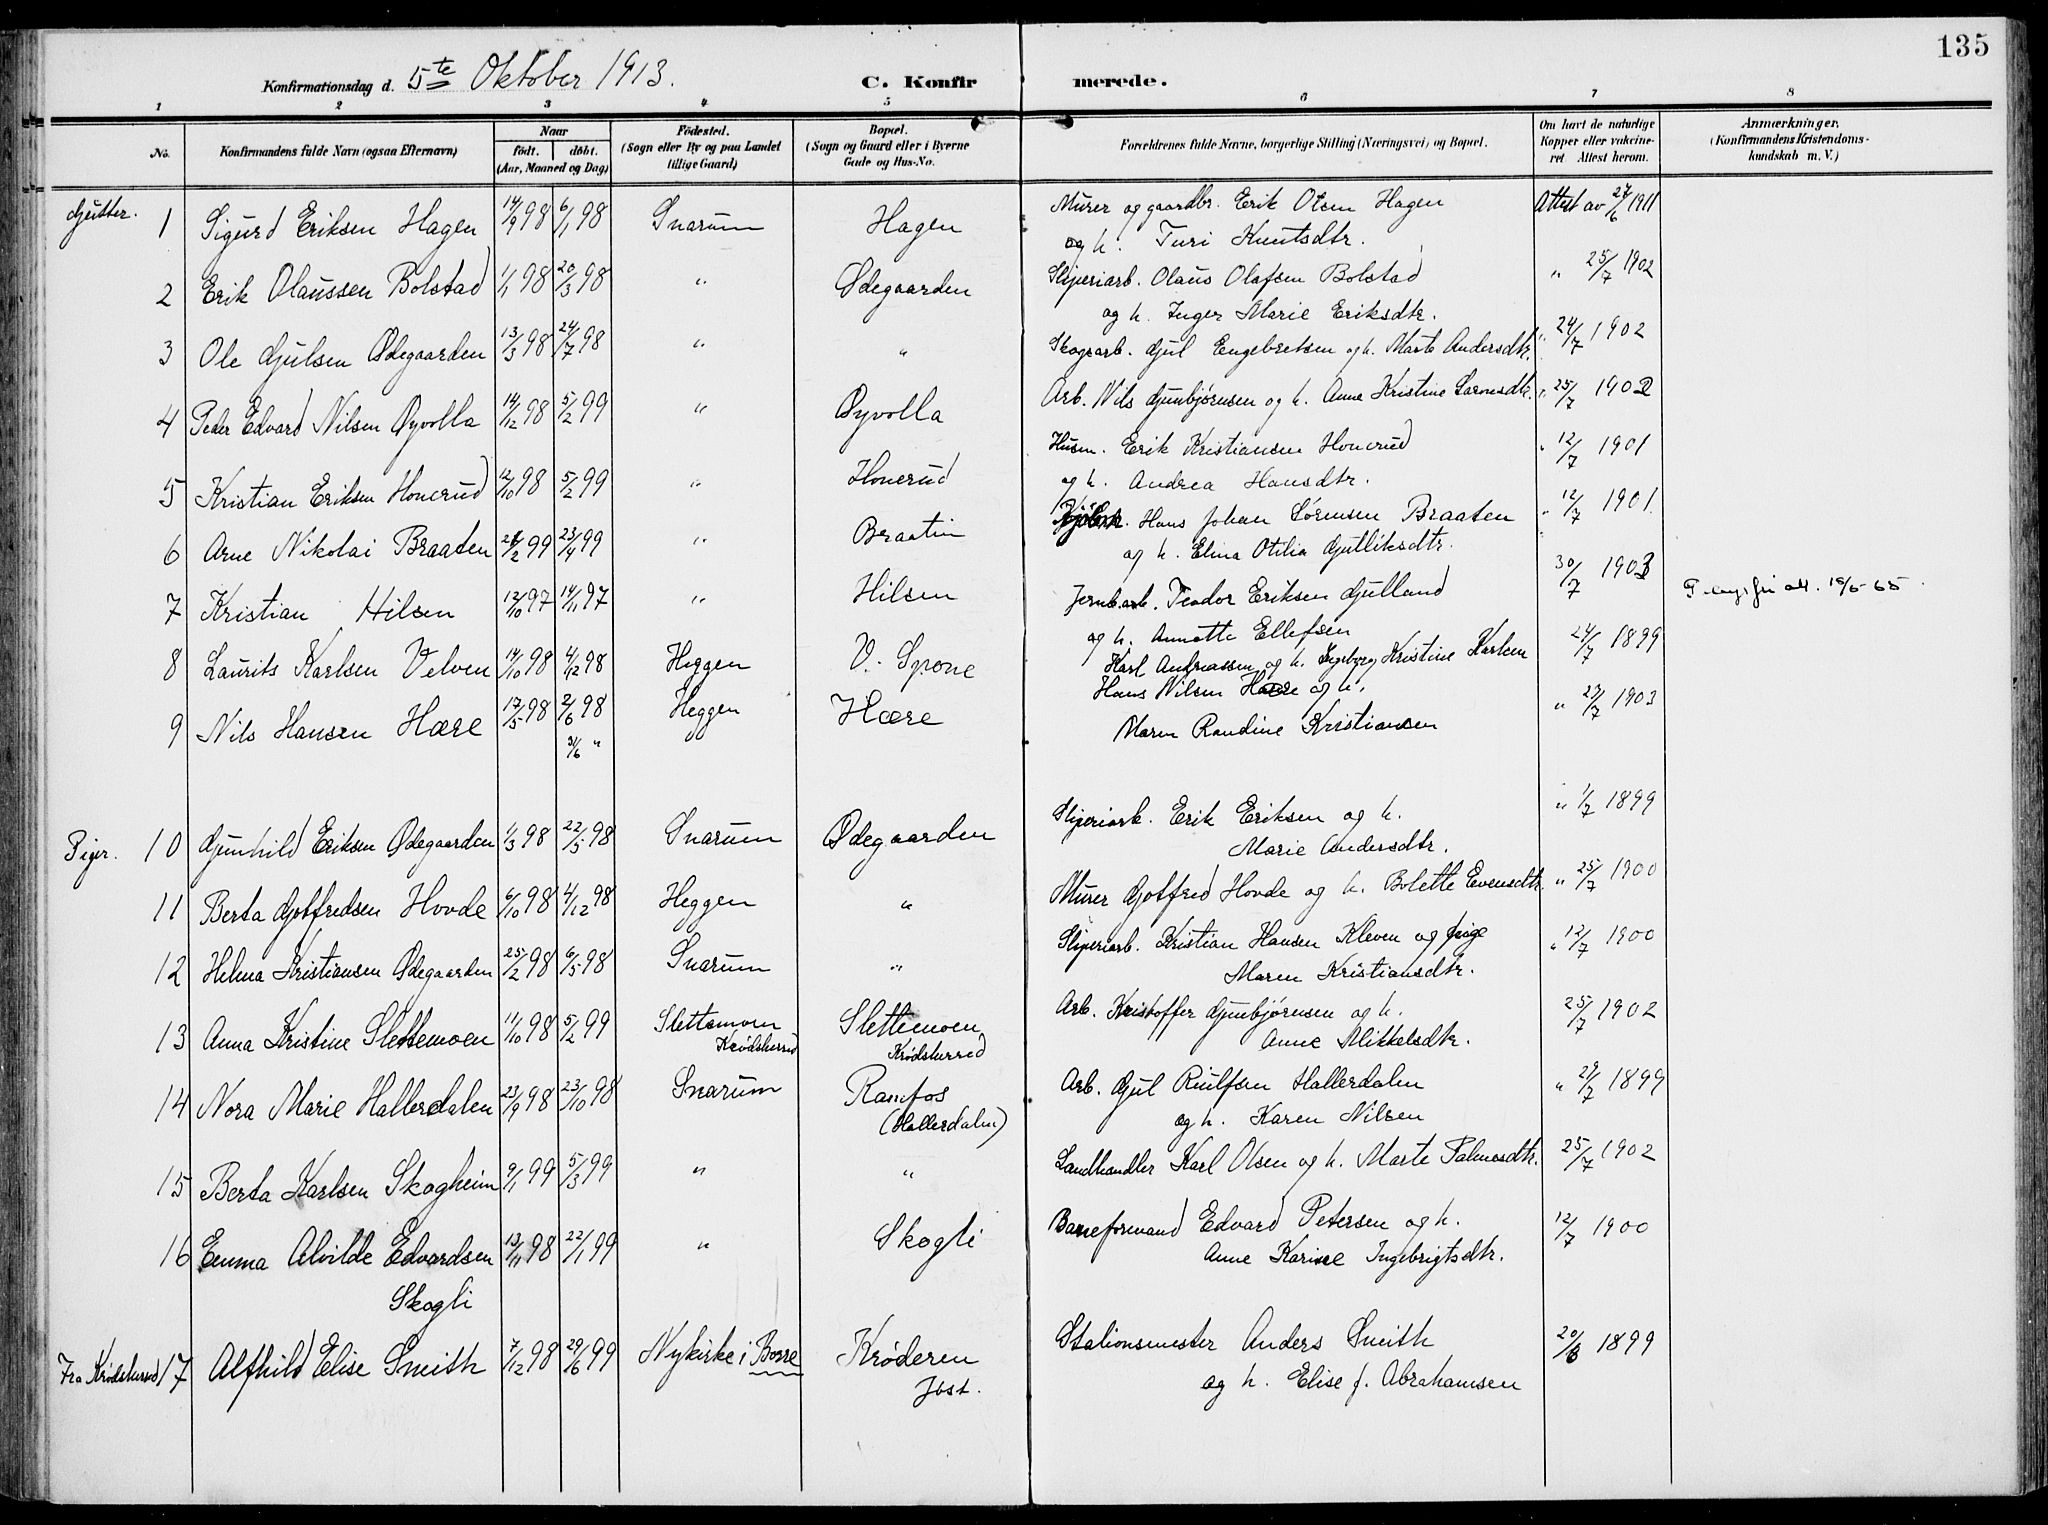 135
Konfirmationsdag d. 5te Oktober 1913. C. Konfir merede.
1 2 3 4 5 6 7 8
No. Konfirmandens fulde Navn (ogsaa Efternavn) Naar født. døbt. (Aar, Maaned og Dag) Fødested. (Sogn eller By og paa Landet tillige Gaard) Bopæl. (Sogn og Gaard eller i Byerne Gade og Hus-No. Forældrenes fulde Navne, borgerlige Stilling (Næringsvei) og Bopæl. Om havt de naturlige Kopper eller vakcineret. Attest herom. Anmærkninger. (Konfirmandens Kristendomskundskab m. V.)
Gutter. 1 Sigurd Eriksen Hagen 14/9 98 6/1 98 Snarum Hagen Murer og gaardbr. Erik Olsen Hagen Attest av 27/6 1911
og h. Turi Knutsdtr.
2 Erik Olaussen Bolstad 1/1 98 20/3 98 " Ødegaarden Sliperiarb. Olaus Olafsen Bolstad " 25/7 1902
og h. Inger Marie Eriksdtr.
3 Ole Gulsen Ødegaarden 13/3 98 24/7 98 " " Skogsarb. Gul Engebretsen og h. Marte Andersdtr. " 24/7 1902
4 Peder Edvard Nilsen Øyvolla 14/12 98 5/2 99 " Øyvolla Arb. Nils Gunbjørnsen og h. Anne Kristine Larsdtr. " 25/7 1902
5 Kristian Eriksen Honerud 12/10 98 5/2 99 " Honerud Husm. Erik Kristiansen Honerud " 12/7 1901
og h. Andrea Hansdtr.
6 Arne Nikolai Braaten 21/2 99 23/4 99 " Braatin Hans Johan Sørensen Braaten " 12/7 1901.
og h. Elina Otilia Gulliksdtr.
7 Kristian Hilsen 12/10 97 14/11 97 " Hilsen Jernb.arb. Teodor Eriksen Gulland 30/7 1903 19/5-65.
og h. Annette Ellefsen
8 Laurits Karlsen Velven 14/10 98 4/12 98 Heggen V. Spone Karl Andreassen og h. Ingeborg Kristine Karlsen 24/7 1899
9 Nils Hansen Hære 17/5 98 2/6 98 Heggen Hære Hans Nilsen Hære og h. " 23/7 1903
31/6 " Maren Randine Kristiansen
Piger. 10 Gunhild Eriksen Ødegaarden 1/3 98 22/5 98 Snarum Ødegaarden Sliperiarb. Erik Eriksen og h. " 1/7 1899
Marie Andersdtr.
11 Berta Gotfredsen Hovde 6/10 98 4/12 98 Heggen " Murer Gotfred Hovde og h. Bolette Evensdtr. " 25/7 1900
12 Helma Kristiansen Ødegaarden 25/2 98 6/5 98 Snarum " Sliperiarb. Kristian Hansen Kleven og pige " 12/7 1900
Maren Kristiansdtr.
13 Anna Kristine Slettemoen 11/10 98 5/2 99 Slettemoen Slettemoen, Arb. Kristoffer Gunbjørnsen og h. 25/7 1902
Krødsherred Krødsherred Anne Mikkelsdtr.
14 Nora Marie Hallerdalen 23/9 98 23/10 98 Snarum Ramfos Arb. Gul Ruulfsen Hallerdalen " 29/7 1899
(Hallerdalen) og h. Karen Nilsen
15 Berta Karlsen Skogheim 9/1 99 5/3 99 " " Landhandler Karl Olsen og h. Marte Palmesdtr. 25/7 1902
16 Emma Alvilde Edvardsen 13/11 98 22/1 99 " Skogli Baneformand Edvard Petersen og h. 12/7 1900
Skogli Anne Karine Ingebrigtsdtr.
Fra Krødsherred 17 Alfhild Elise Smith 7/12 98 29/6 99 Nykirke i Borre Krøderen Stationsmester Anders Smith 20/8 1899
Jbst. og h. Elise f. Abrahamsen